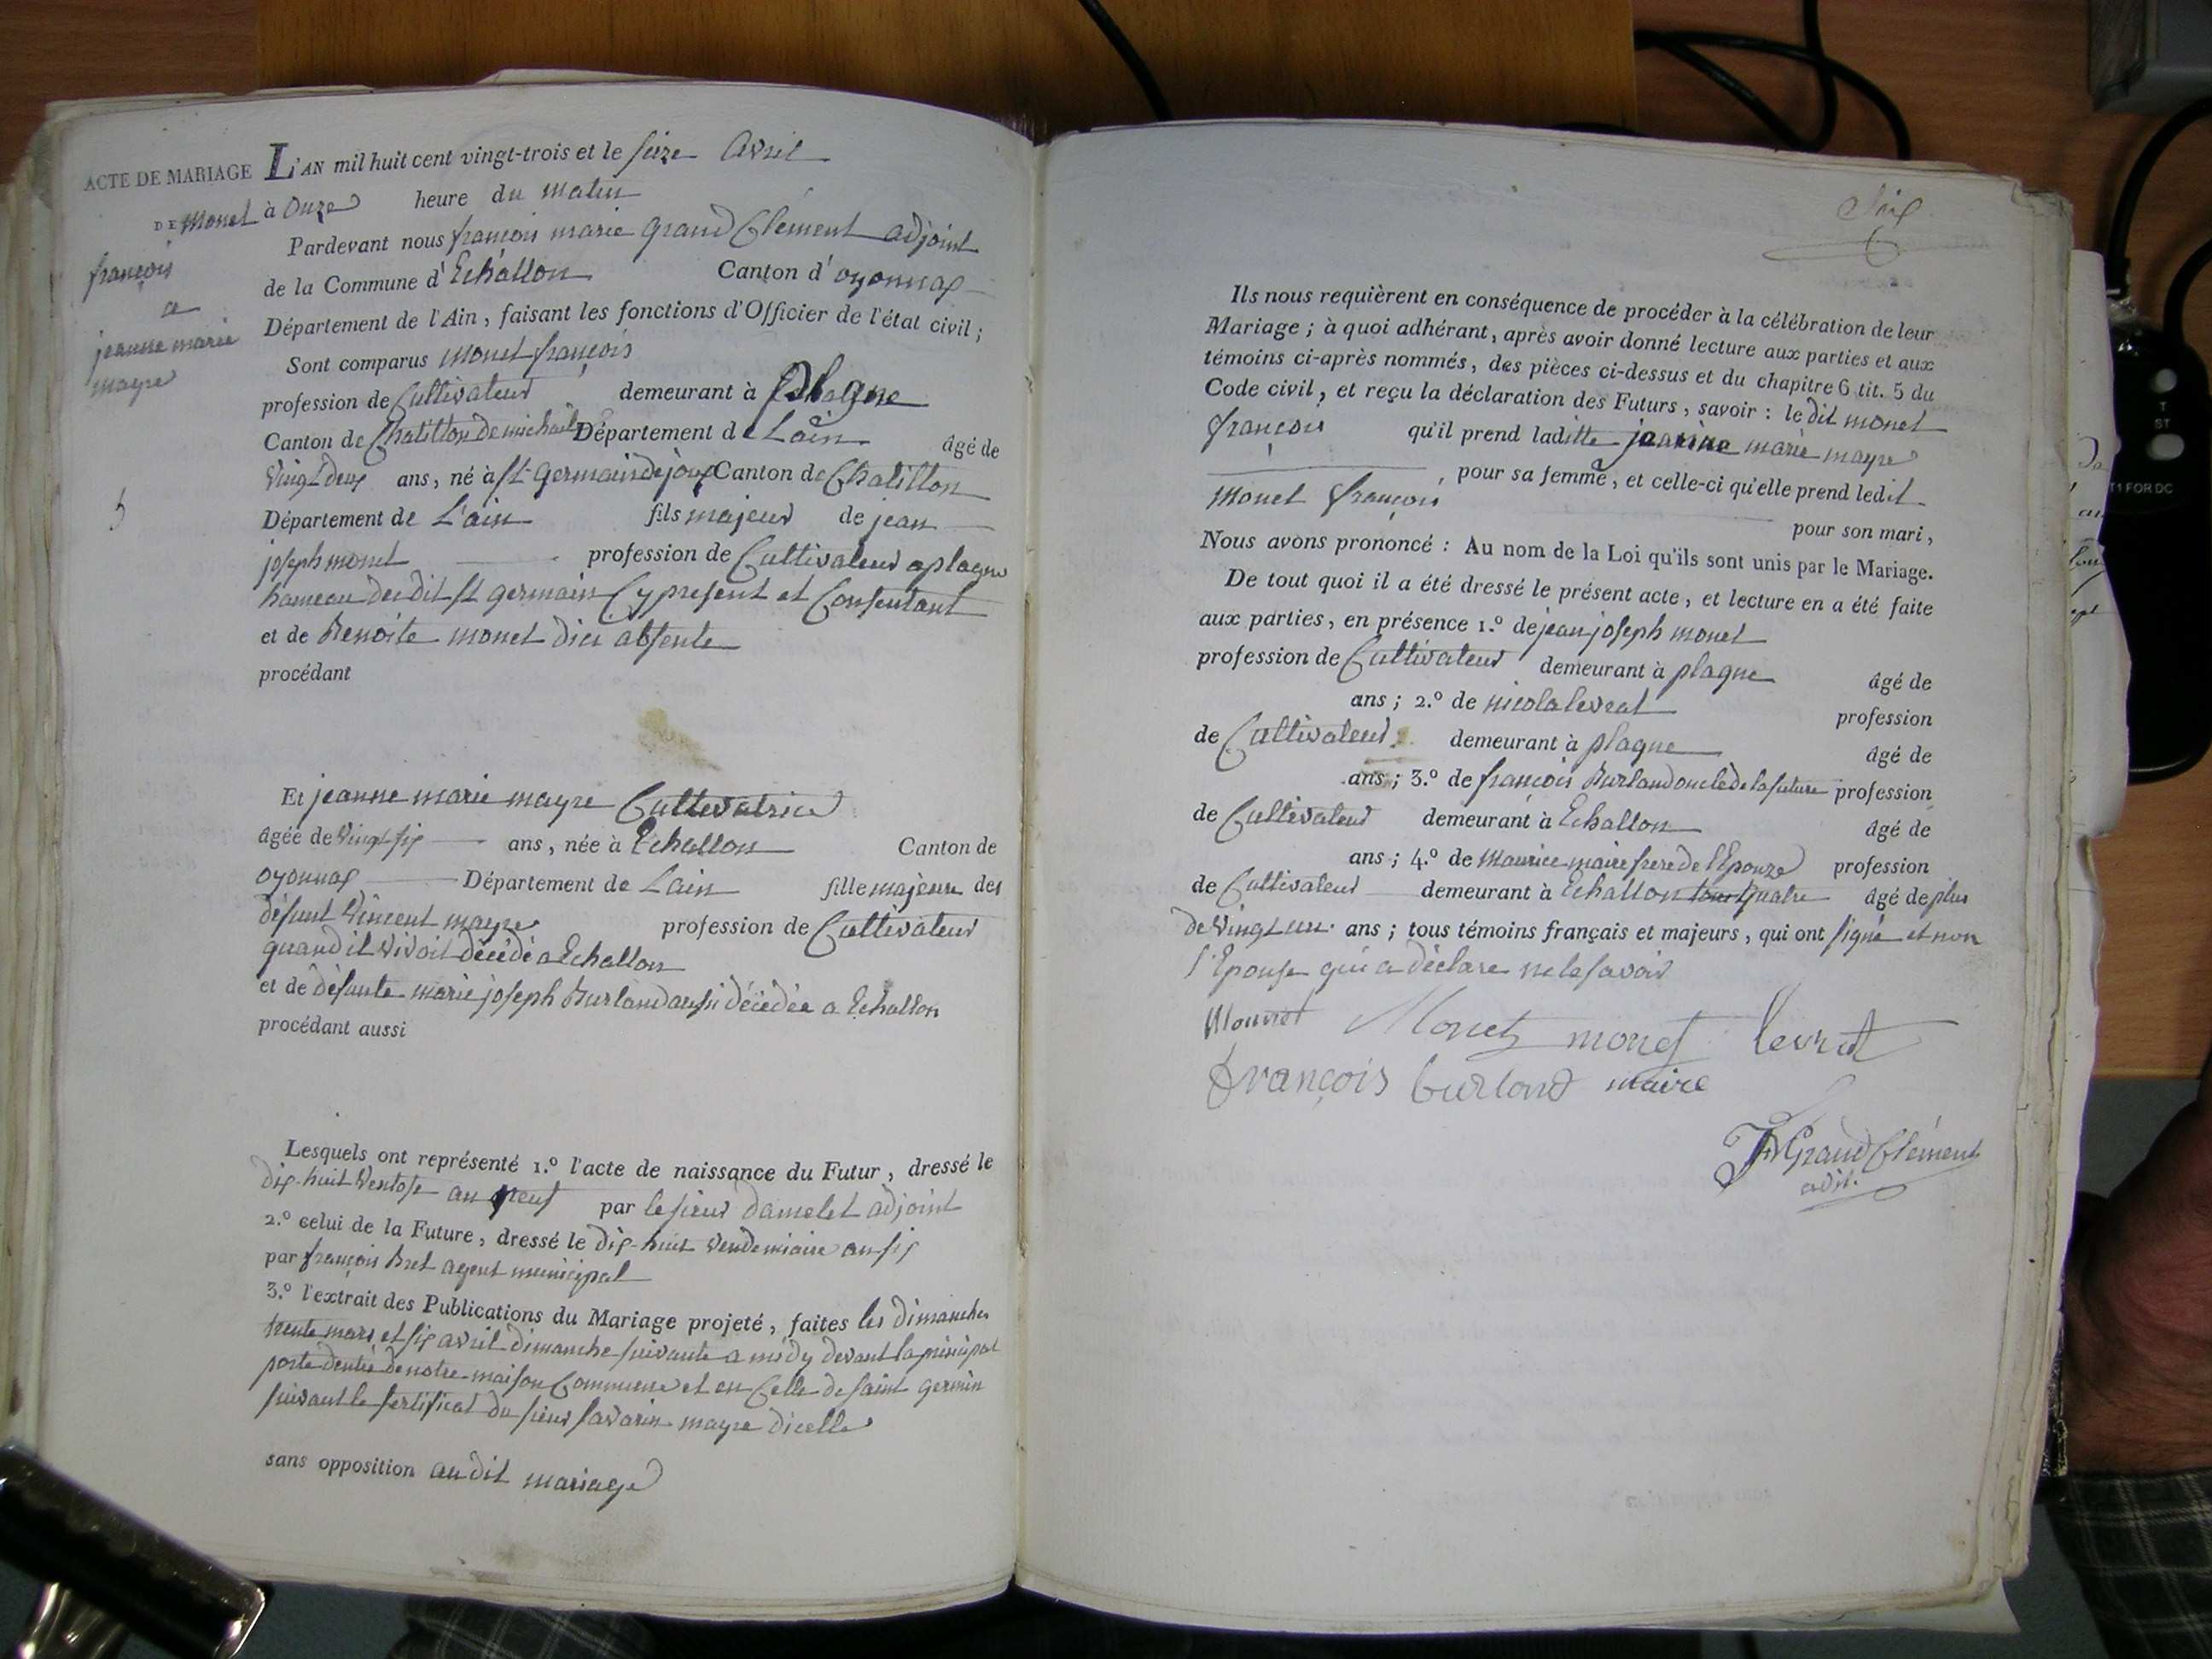 ACTE DE MARIAGE
DE Monet
françois
a
jeanne marie
mayre
5
L'AN mil huit cent vingt-trois et le seize Avril
à Onze heure du matin
Pardevant nous françois marie Grand Clément adjoint
de la Commune d'Echallon Canton d'oyonnax
Département de l'Ain, faisant les fonctions d'Officier de l'état civil;
Sont comparus monet françois
profession de Cultivateur demeurant à plagne
Canton de Chatillon de michaille Département de Lain âgé de
vingt deux ans, né à St germain de joux Canton de Chatillon
Département de L'ain fils majeur de jean
joseph monet profession de Cultivateur a plagne
hameau dudit St germain Cy present et Consentant
et de Benoite monet dicy absente
procédant
Et jeanne marie mayre Cultivatrice
âgée de vingt six ans, née à Echallon Canton de
oyonnax Département de Lain fille majeure des
défunt Vincent mayre profession de Cultivateur
quand il vivoit décédé a Echallon
et de défunte marie joseph Burland aussi décédée a Echallon
procédant aussi
Lesquels ont représenté 1.º l'acte de naissance du Futur, dressé le
dix-huit Ventose an neuf par le sieur damelet adjoint
2.º celui de la Future, dressé le dix-huit vendemiaire an six
par françois Bret agent municipal
3.º l'extrait des Publications du Mariage projeté, faites les dimanches
trente mars et six avril dimanche suivante a midy devant la principal
porte dentré de notre maison Commune et en Celle de saint germin
suivant le sertificat du sieur savarin mayre dicelle
sans opposition audit mariage
Six
Ils nous requièrent en conséquence de procéder à la célébration de leur
Mariage; à quoi adhérant, après avoir donné lecture aux parties et aux
témoins ci-après nommés, des pièces ci-dessus et du chapitre 6 tit. 5 du
Code civil, et reçu la déclaration des Futurs, savoir: le dit monet
françois qu'il prend laditte jeanne marie mayre
pour sa femme, et celle-ci qu'elle prend ledit
Monet françois
pour son mari,
Nous avons prononcé: Au nom de la Loi qu'ils sont unis par le Mariage.
De tout quoi il a été dressé le présent acte, et lecture en a été faite
aux parties, en présence 1.º de jean joseph monet
profession de Cultivateur demeurant à plagne âgé de
ans; 2.º de nicola levrat profession
de Cultivateur demeurant à plagne âgé de
ans; 3.º de françois Burland oncle de la future profession
de Cultivateur demeurant à Echallon âgé de
ans; 4.º de Maurice maire frere de l'Epouze profession
de Cultivateur demeurant à Echallon tous quatre âgé de plus
de vingt un ans; tous témoins français et majeurs, qui ont signé et non
l'Epouse qui a déclare ne le savoir
Monnet Monet monet levrat
françois burland maire
FM Grand Clément
adjt.